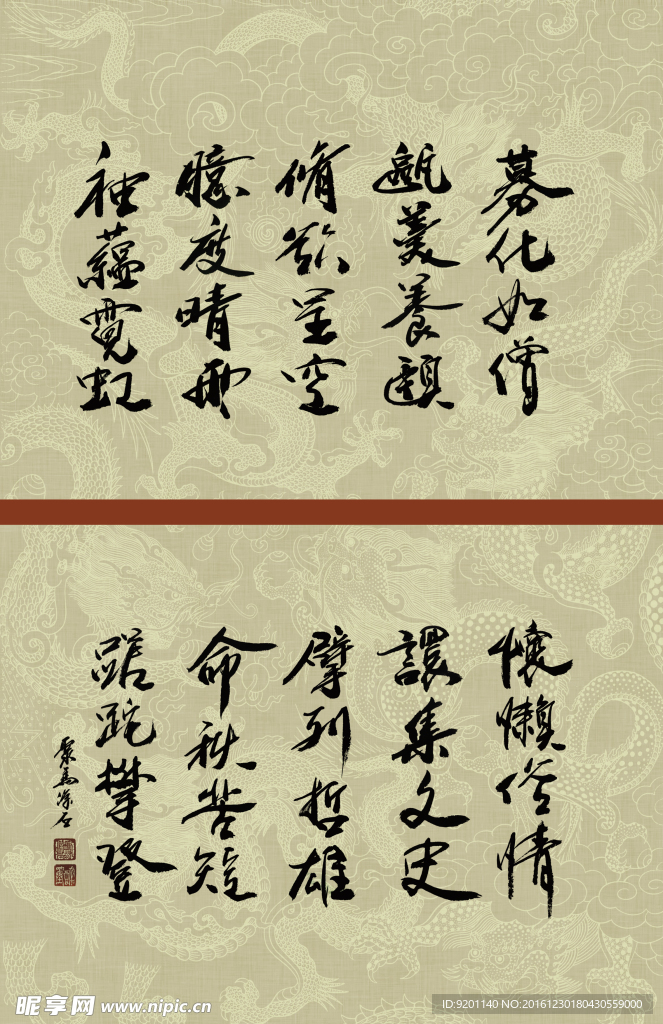 募化如僧
羹養頤
脩欲呈空
臆度晴雨
袖蘊霓虹
懷懶俗情
集文史
擘列哲雄
命秋苦短
蹉跎攀登
昵享网 www.nipic.cn
ID:9201140 NO:20161230180430559000